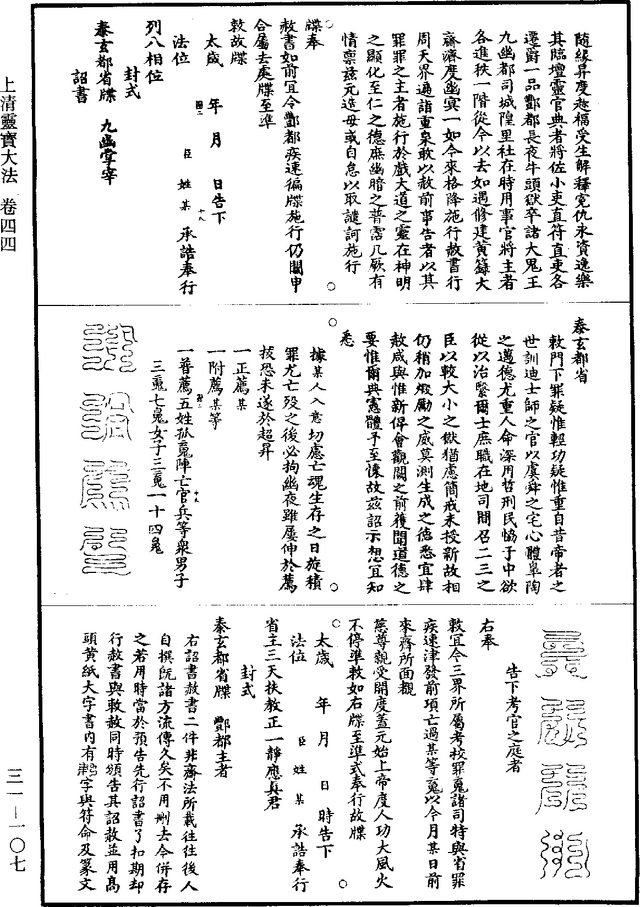 上清靈寶大法 卷四四
三一—一〇七
隨緣昇度趂福受生解釋寃仇永資逸樂
其臨壇靈官典者將佐小吏直符直吏各
遷爵一品酆都長夜牛頭獄卒諸大鬼王
九幽都司城隍里社在時用事官將主者
各進秩一階從今以去如遇修建黃籙大
齋濟度幽冥一如今來格降施行赦書行
周天界遍詣重泉敢以赦前事告者以其
罪罪之主者施行於戲大道之靈在神明
之顯化至仁之德庶幽暗之普霑凡厥有
情稟兹元造毋或自怠以取譴訶施行
牒奉
赦書如前宜令酆都疾速徧牒施行仍關申
合屬去處牒至準
敕故牒
太歲 年 月 日告下
法位 臣 姓 某 承誥奉行
列八相位
封式
泰玄都省牒 九幽掌宰
詔書
泰玄都省
敕門下罪疑惟輕功疑惟重自昔帝者之
世訓迪士師之官以虞舜之宅心體臯陶
之邁德尤重人命深用哲刑民恊于中欲
從以治緊爾士庶職在地司間召二三之
臣以較大小之獄猶慮簡戒未授新故相
仍稍加煅勵之威莫測生成之德悉宜肆
赦咸與惟新俾會觀闕之前獲聞道德之
要惟爾典憲體予至懷故茲詔示想宜知
悉
據某人入意切慮亡魂生存之日旋積
罪尤亡歿之後必拘幽夜雖屢伸於薦
拔恐未遂於超昇
一正薦某
一附薦某等
一普薦五姓孤䰟陣亡官兵等衆男子
三䰟七䰟女子三䰟一十四䰟
告下考官之庭者
右奉
敕宜令三界所屬考校罪䰟諸司特與省罪
疾速津發前項亡過某等䰟以今月某日前
來齋所面觀
慈尊親受開度蓋元始上帝度人功大風火
不停準敕如右牒至準式奉行故牒
太歲 年 月 日 時告下
法位 臣 姓 某 承誥奉行
省主三天扶教正一靜應真君
封式
泰玄都省牒 酆都主者
右詔書赦書二件非齋法所載往往後人
自撰旣諸方流傳久矣不用刪去今併存
之若用時當於預告先行詔書了扣期却
行赦書與敕赦同時頒告其詔赦並用高
頭黃紙大字書內有字與符命及篆文